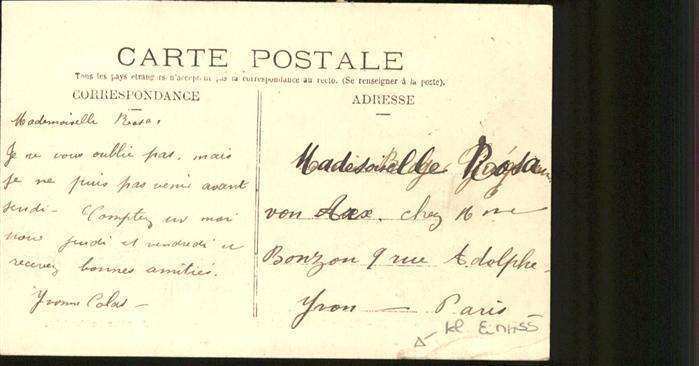 CARTE POSTALE
Tous les pays étrangers n'acceptent pas la correspondance au recto. (Se renseigner à la poste).
CORRESPONDANCE
ADRESSE
Mademoiselle Rosa,
Je ne vous oublie pas, mais
je ne puis pas venir avant
jeudi - Comptez sur moi
pour jeudi et vendredi et
recevez bonnes amitiés.
Yvonne Colas -
Madeisoiselle Rosa
von Aax. chez Mme
Bonzon 9 rue Adolphe-
Yvon — Paris
kl.